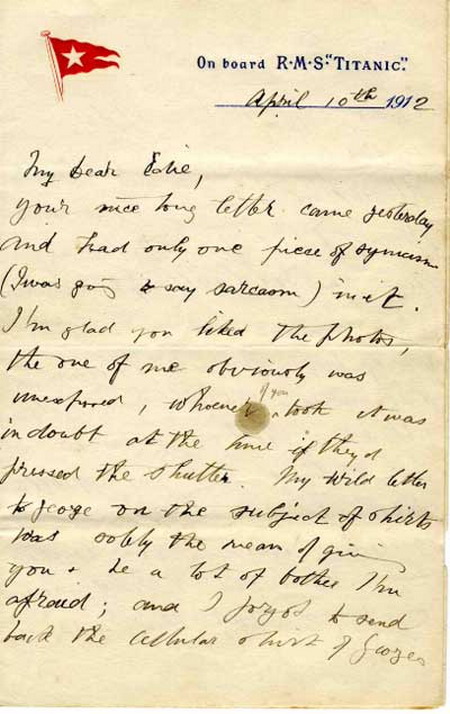 On board R·M·S "TITANIC".
April 10th 1912
My dear
your nice long letter came yesterday
and had only one piece of
(I was going to say sarcasm) in it.
I'm glad you liked the photos,
the one of me obviously was
of you
unexposed, whoever took it was
in doubt at the time if they'd
pressed the shutter. My wild letter
to George on the subject of shirts
was solely the means of giving
you & he a lot of bother I'm
afraid; and I forgot to send
back the cellular shirt of Georges